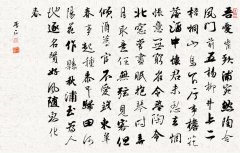 吾愛崔秋浦宛然陶令
風門前五楊柳井上二
梧桐山鳥下廳事簷花
落酒中懷君未忍去惆
悵意無窮崔令學陶令
北窗常晝眠抱琴時弄
月取意任無弦見客但
傾酒為官不愛錢東皋
春事起種黍早歸田河
陽花作縣秋浦玉為人
地逐名賢好風隨惠化
春